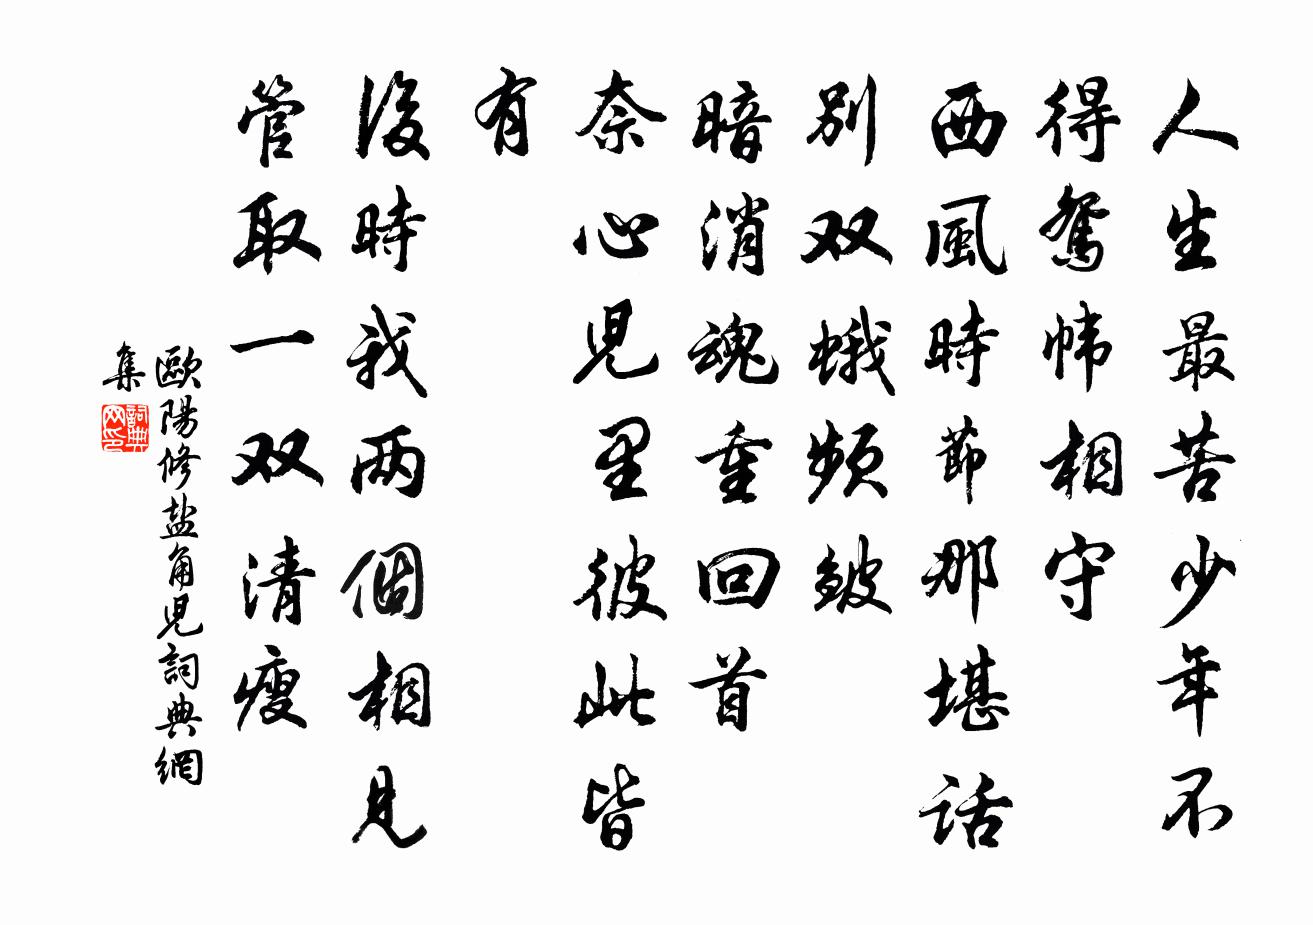 人生最苦少年不
得鸳帏相守
西風時節那堪話
別双蛾频皱
暗消魂重回首
奈心児里彼此皆
有
後時我两個相見
管取一双清瘦
歐陽修盐角児詞典網
集
詞典
网印